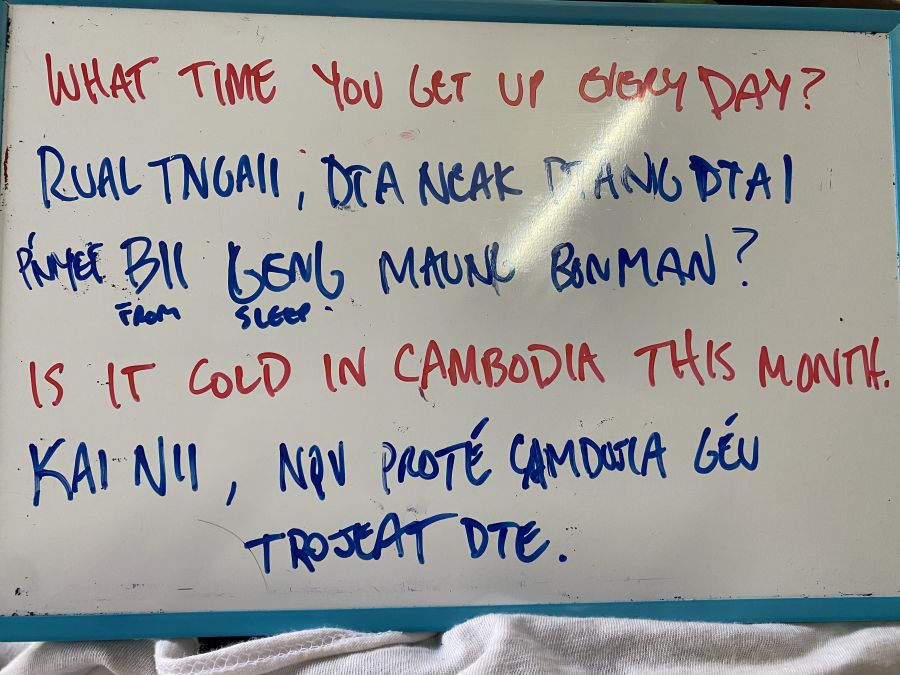 WHAT TIME YOU GET UP EVERY DAY?
RUAL TNGAII, DTA NEAK DTANG DTAI
PÍNYEE BII GENG MAUNG BONMAN?
FROM SLEEP
IS IT COLD IN CAMBODIA THIS MONTH.
KAI NII, NOV PROTÉ CAMDUJIA GÉU
TROJEAT DTE.